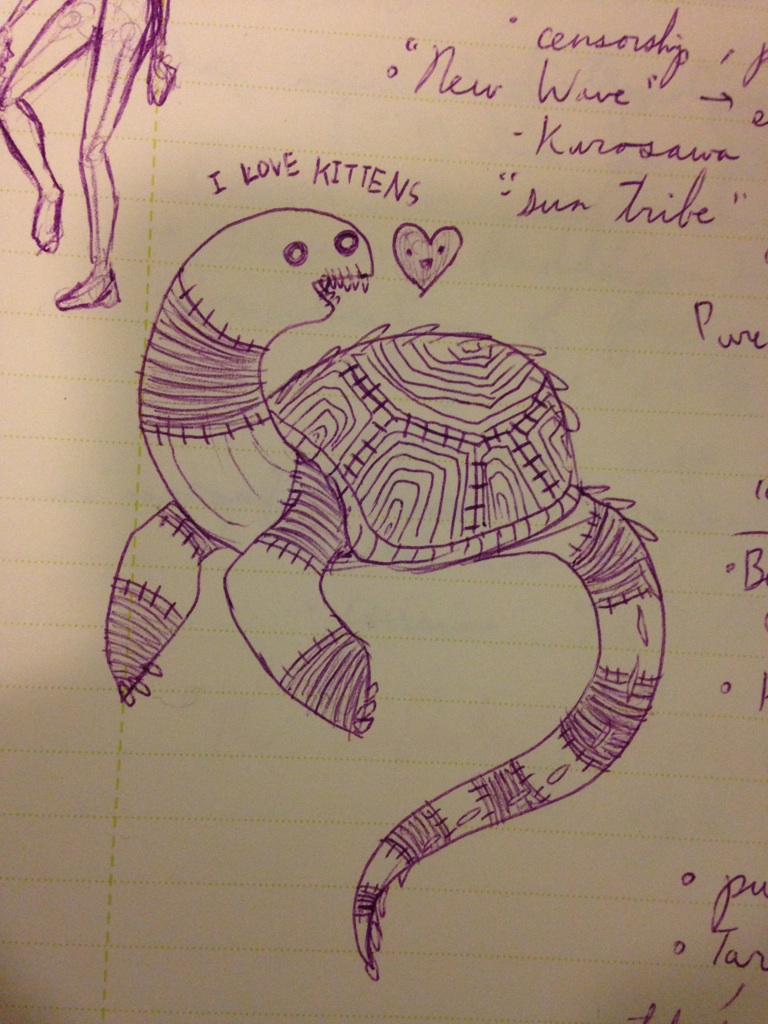 censorship,
"New Wave" →
- Kurosawa
"sun tribe"
I LOVE KITTENS
Pure